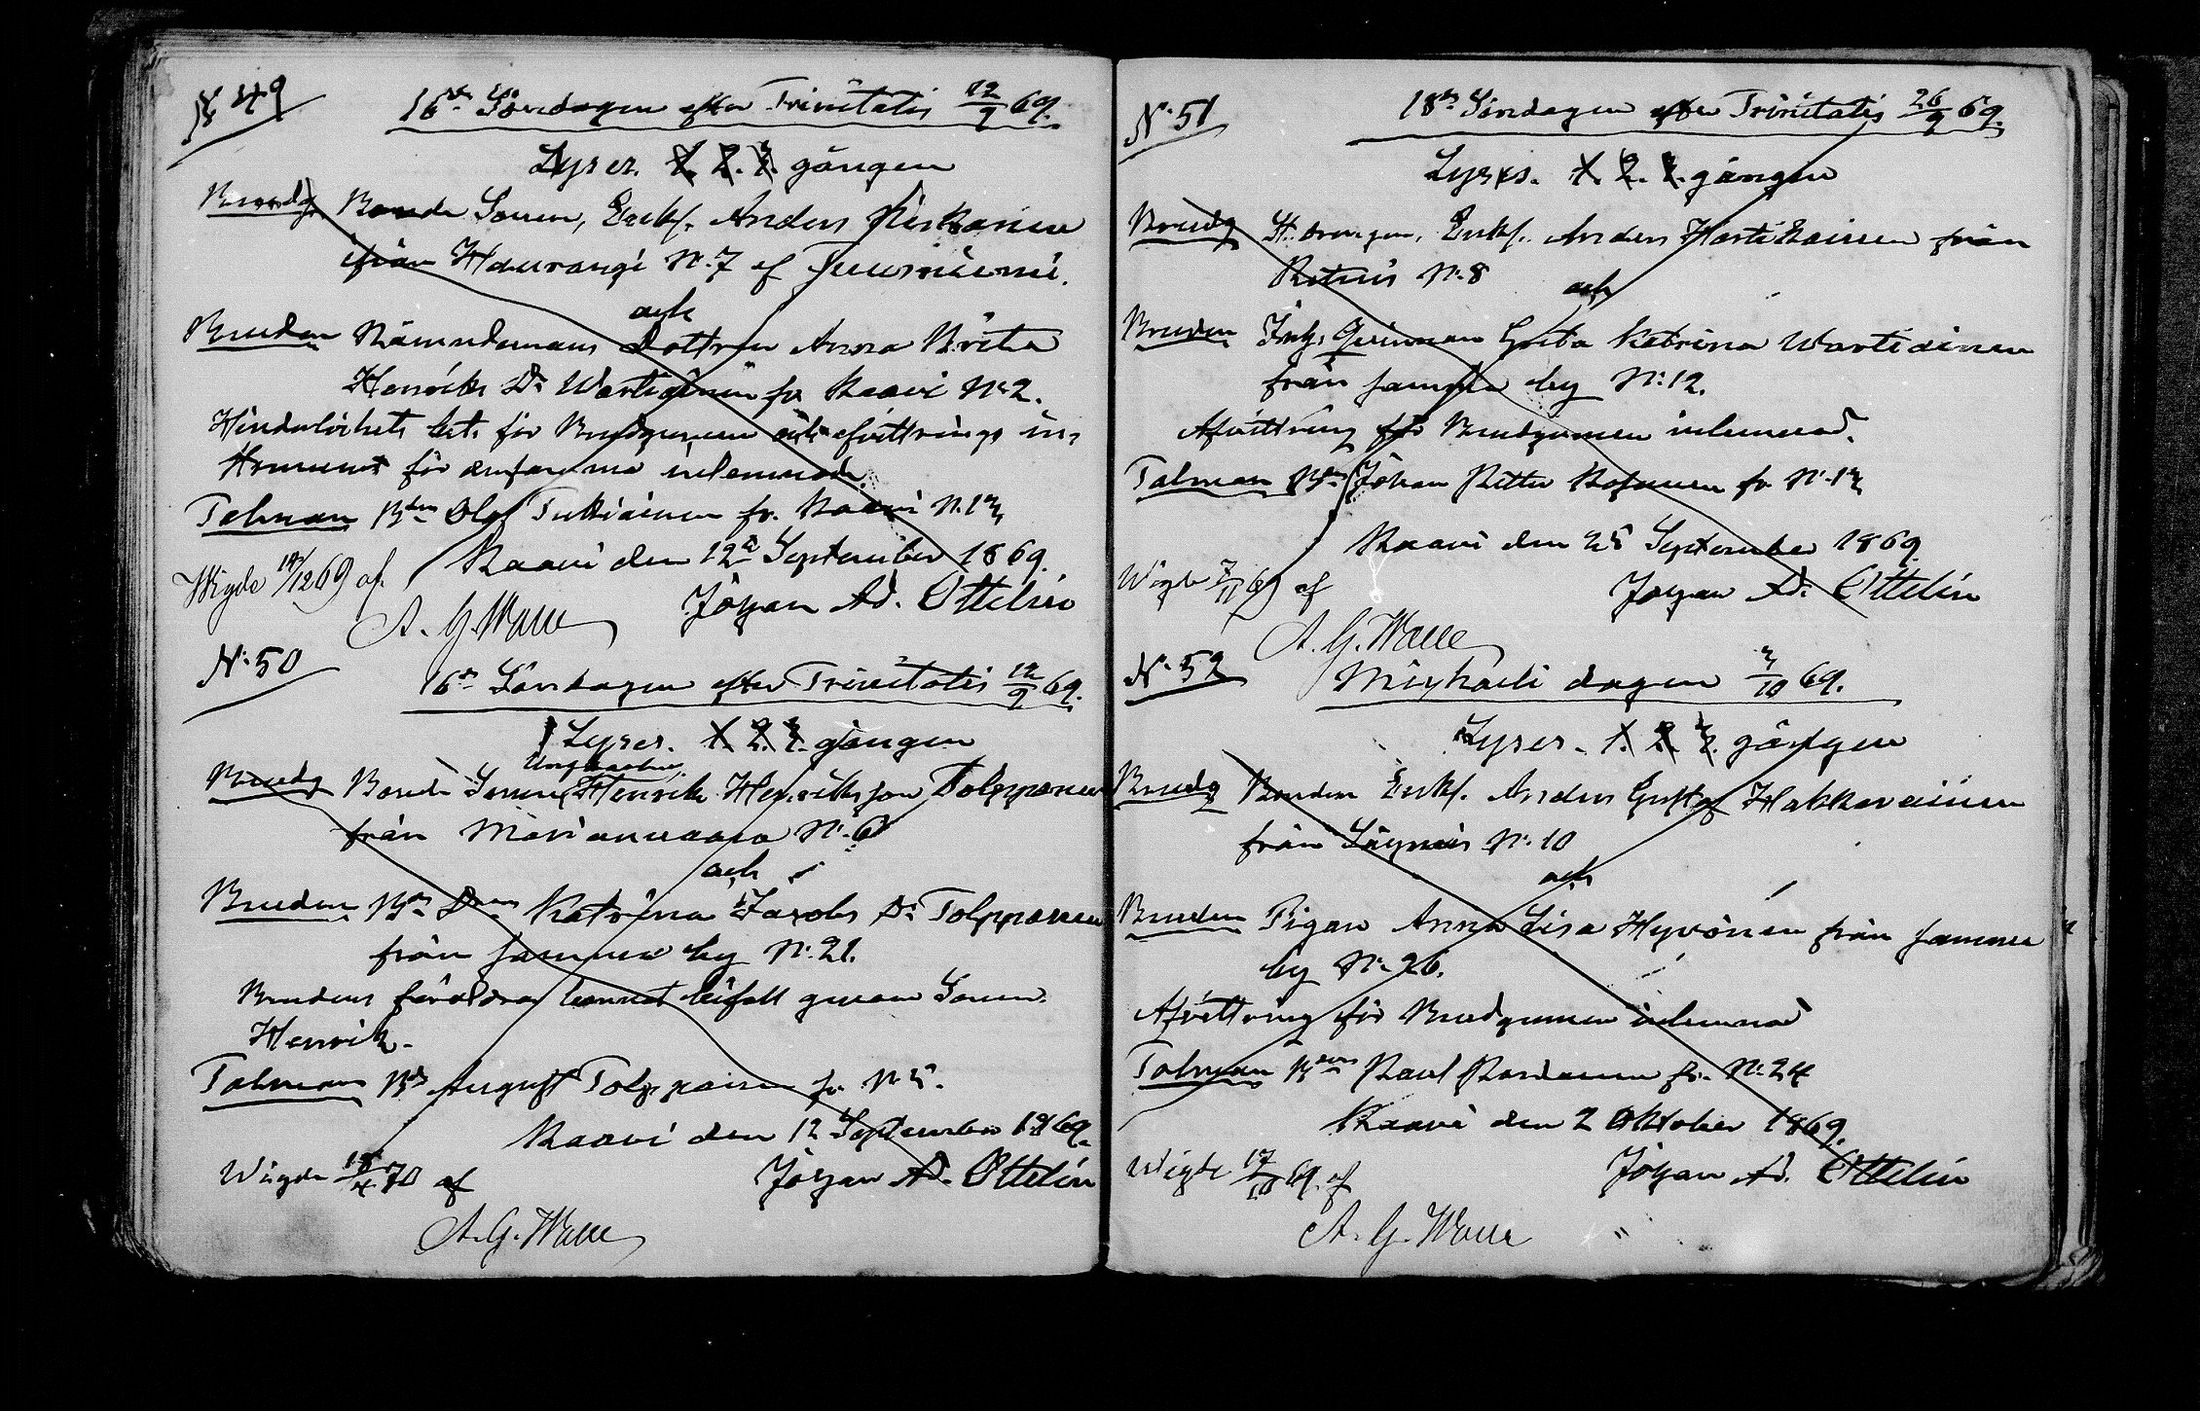 N 49
16de Söndagen efter Trinitatis 12/9 69.
Lyses. 1. 2. 3. gången
Brudg. Bonde Sonen, Enkl. Anders Piiskonen
ifrån Haurangi N:7 af
och
Bruden Nämndemans Dottren Anna Brita
Henriks Dr Wartiainen fr Kaavi N:2.
Hinderlöshets bet. för Brudgumen och afvittrings in-
strument för densamma inlemnade.
Talman Bdn Olof Tukiainen fr. Kaavi N.13
Kaavi den 12a September 1869.
Wigde 19/12 69 af Johan Ad. Ottelin
A. G. Walle
N:50
16de Söndagen efter Trinitatis 12/9 69.
Lyses. 1. 2. 3. gången
Ungkarlen
Brudg Bonde Sonen Henrik Henriksson Tolppanen
från Marianvaara N:6
och
Bruden Bde Dren Katrina Jakobs Dr Tolppanen
från samma by N:21.
Brudens föräldrar lemnat bifall genom Sonen
Henrik.
Talman Bd August Tolppainen fr N 5.
Kaavi den 12 September 1869.
Wigde 18/4 70 af Johan Ad. Ottelin
A. G. Walle
N:51
18de Söndagen efter Trinitatis 26/9 69.
Lyses. 1. 2. 3. gången
Brudg Drengen, Enkl. Anders Hartikainen från
N:8
och
Bruden Inh. Qvinnan Greta Katrina Wartiainen
från samma by N:12.
Afvittring för Brudgumen inlemnad.
Talman Bdn Johan Petter Kosunen fr N:13
Kaavi den 25 September 1869
Wigde 7/11 69 af Johan Ad. Ottelin
A. G. Walle
N:52
Michaeli dagen 3/10 69.
Lyses. 1. 2. 3. gången
Brudg Bonden Enkl. Anders Gustaf Hakkarainen
från Säyneis N:10
och
Bruden Pigan Anna Lisa Hyvönen från samma
by N:26.
Afvittring för Brudgumen inlemnad
Talman Bden Paul Pardanen fr. N:24
Kaavi den 2 Oktober 1869.
Wigde 17/10 69. af Johan Ad. Ottelin
A. G. Walle